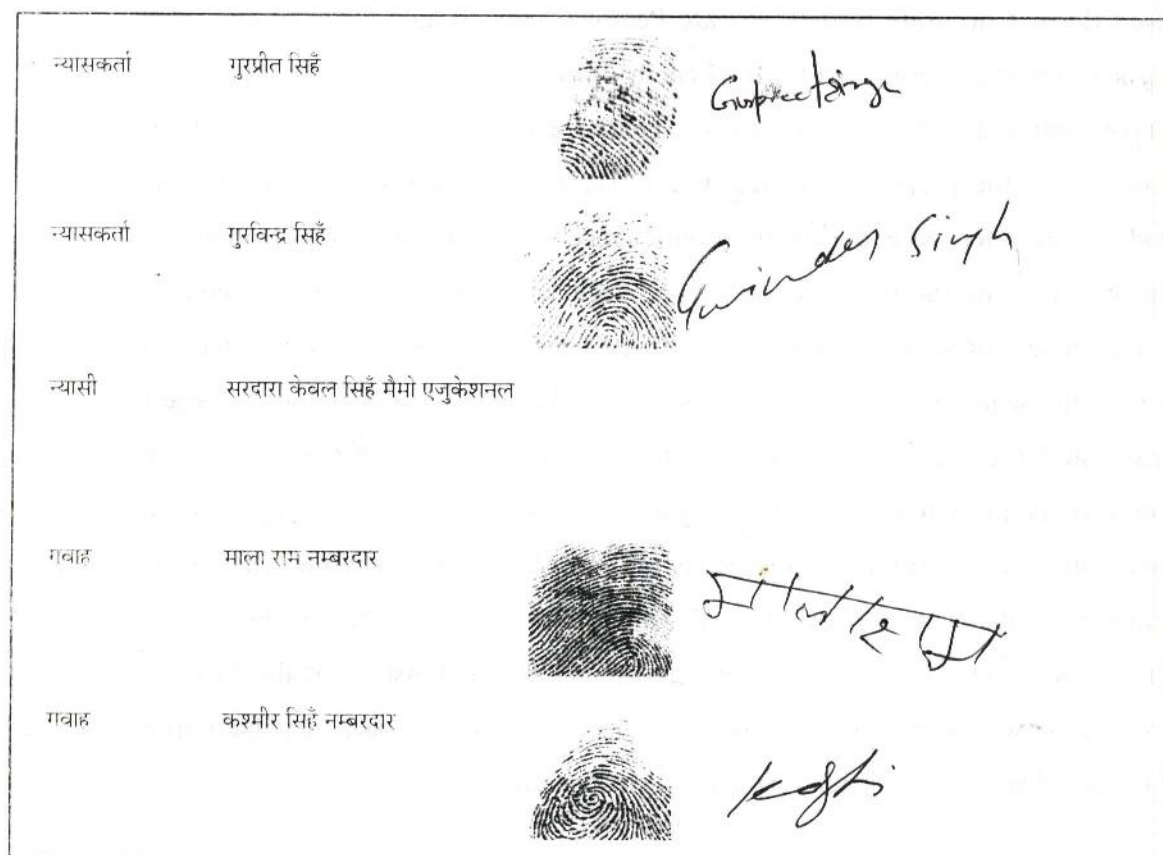 न्यासकर्ता गुरप्रीत सिहँ Gurpreet Singh
न्यासकर्ता गुरविन्द्र सिहँ Gurvinder Singh
न्यासी सरदारा केवल सिहँ मैमो एजुकेशनल
गवाह माला राम नम्बरदार
गवाह कश्मीर सिहँ नम्बरदार